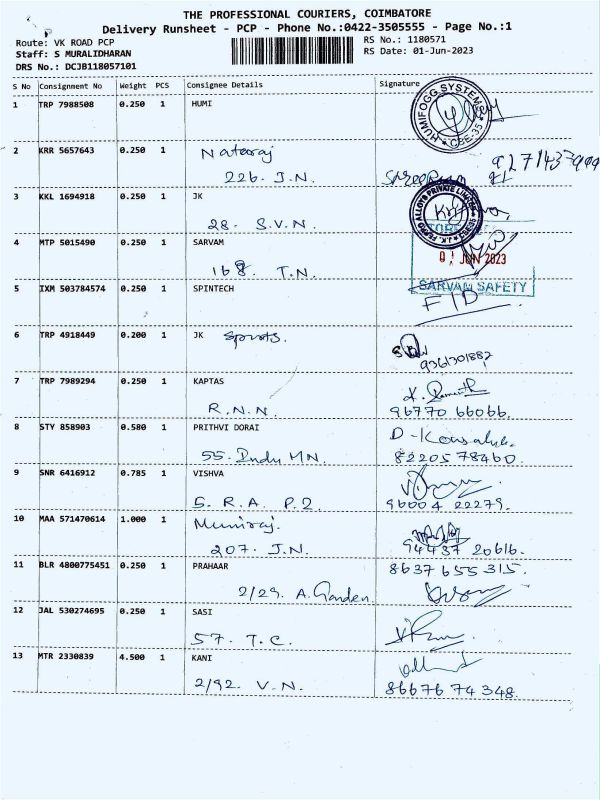 THE PROFESSIONAL COURIERS, COIMBATORE
Delivery Runsheet - PCP - Phone No.:0422-3505555 - Page No.:1
Route: VK ROAD PCP
RS No.: 1180571
Staff: S MURALIDHARAN
RS Date: 01-Jun-2023
DRS No.: DCJB118057101
S No Consignment No Weight PCS Consignee Details Signature
1 TRP 7988508 0.250 1 HUMI
HUMIFOGG SYSTEMS
CBE-35
2 KRR 5657643 0.250 1 Nataraj
226. J.N.
3 KKL 1694918 0.250 1 JK
28. S.V.N.
4 MTP 5015490 0.250 1 SARVAM
168. T.N.
01 JUN 2023
SARVAM SAFETY
5 IXM 503784574 0.250 1 SPINTECH
F I D
6 TRP 4918449 0.200 1 JK Sports.
9361301882
7 TRP 7989294 0.250 1 KAPTAS
R.N.N. 96770 66066.
8 STY 858903 0.580 1 PRITHVI DORAI
55. Indu MN. 82205 78460.
9 SNR 6416912 0.785 1 VISHVA
S. R. A. P. 2. 96004 22279.
10 MAA 571470614 1.000 1 Muniraj.
207. J.N. 94437 20616.
11 BLR 4800775451 0.250 1 PRAHAAR 8637 655 315.
2/29. A. Garden.
12 JAL 530274695 0.250 1 SASI
57. T.C.
13 MTR 2330839 4.500 1 KANI
2/92. V.N. 86676 74 348.